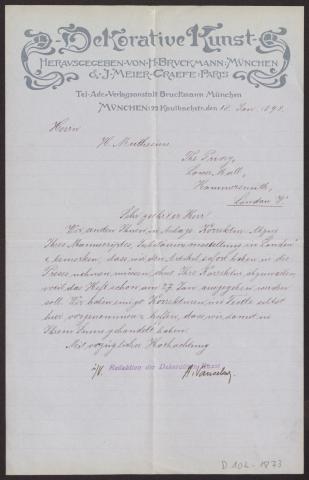 Dekorative Kunst
HERAUSGEGEBEN VON H. BRUCKMANN, MÜNCHEN
& J. MEIER-GRAEFE, PARIS
Tel-Adr. Verlagsanstalt Bruckmann München
MÜNCHEN 22 Kaulbachstr. den 18. Jan. 1898.
Herrn
H. Muthesius
The Priory,
Lower Mall,
Hammersmith,
London W
Sehr geehrter Herr!
Wir senden Ihnen in Anlage Korrektur Abzug
Ihres Manuscriptes in London
& bemerken, dass wir den Artikel sofort haben in die
Presse nehmen müssen, ohne Ihre Korrektur abzuwarten,
weil das Heft schon am 27. Jan. ausgegeben werden
soll. Wir haben einige Korrekturen im Texte selbst
hier vorgenommen & hoffen, dass wir damit in
Ihrem Sinne gehandelt haben.
Mit vorzüglicher Hochachtung
Redaktion der Dekorativen Kunst
D 102-1873